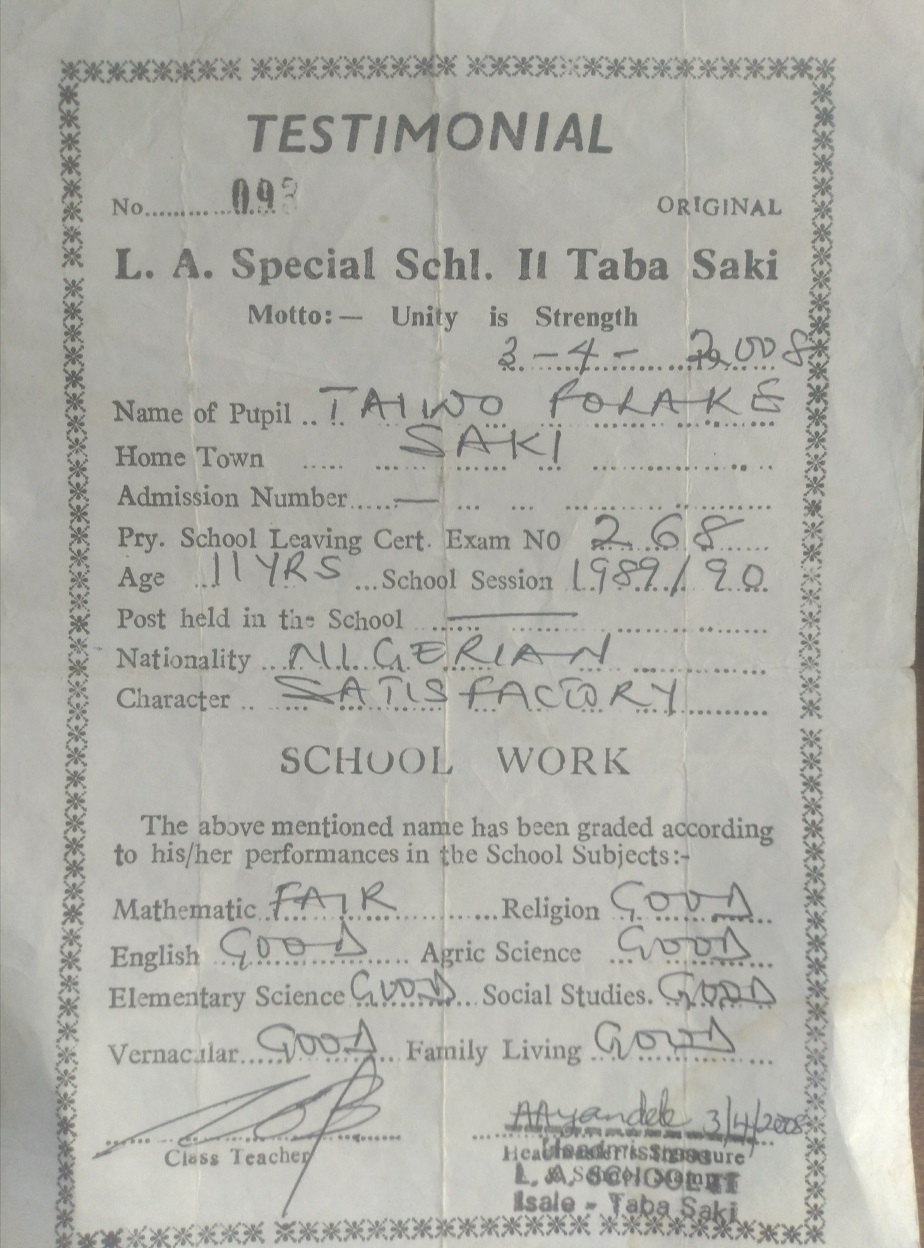 TESTIMONIAL
No.......... 093 ORIGINAL
L. A. Special Schl. II Taba Saki
Motto:— Unity is Strength
3-4- 2008
Name of Pupil .. TAIWO FOLAKE
Home Town ..... SAKI
Admission Number.....—
Pry. School Leaving Cert. Exam NO 268
Age ..11YRS ...School Session 1989/90
Post held in the School ——
Nationality .. NIGERIAN
Character .. SATISFACTORY
SCHOOL WORK
The above mentioned name has been graded according
to his/her performances in the School Subjects:-
Mathematic FAIR Religion GOOD
English GOOD Agric Science GOOD
Elementary Science GOOD Social Studies. GOOD
Vernacular GOOD Family Living GOOD
AAyandele 3/4/2008
Class Teacher
L. A. SCHOOL II
Isale - Taba Saki